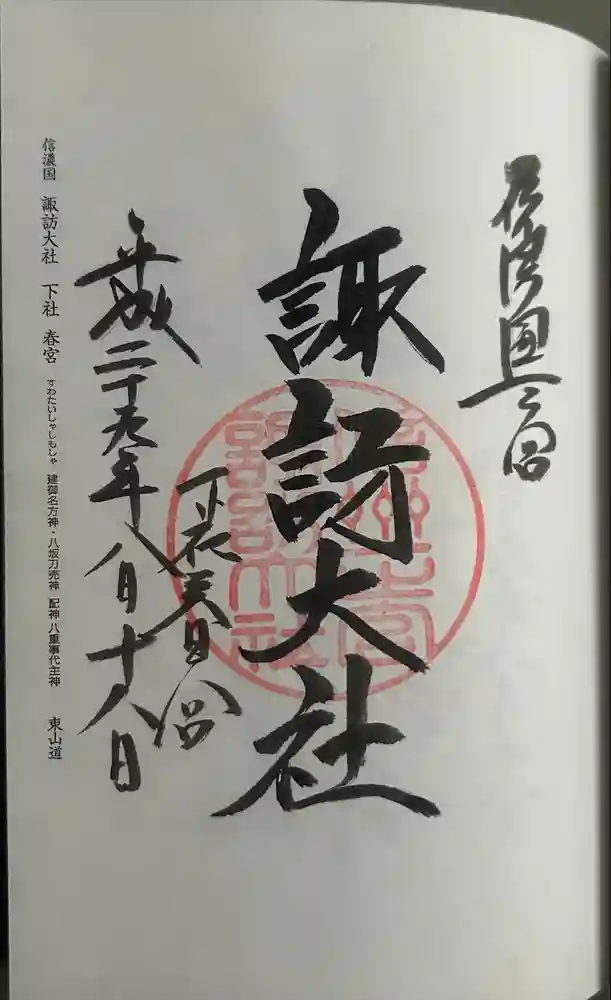 信濃國一之宮
諏訪大社
下社春宮
平成二十九年八月十八日
信濃国 諏訪大社 下社 春宮 すわたいしゃしもしゃ 建御名方神・八坂刀売神 配神 八重事代主神 東山道